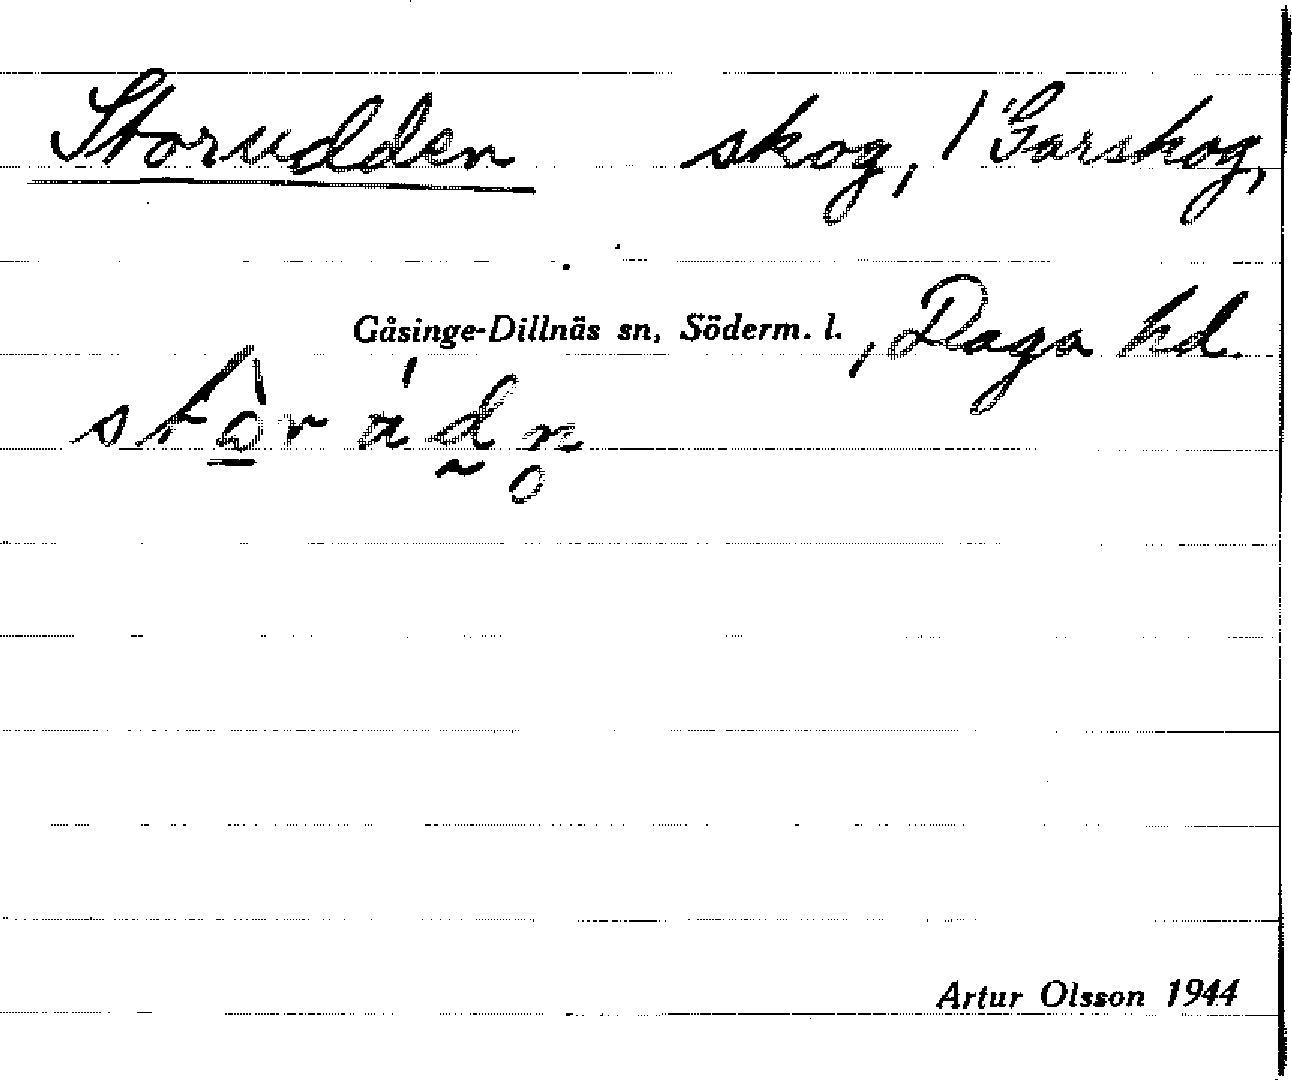 Storudden skog, 1 Garskog,
Gåsinge-Dillnäs sn, Söderm. l., Daga hd.
Artur Olsson 1944